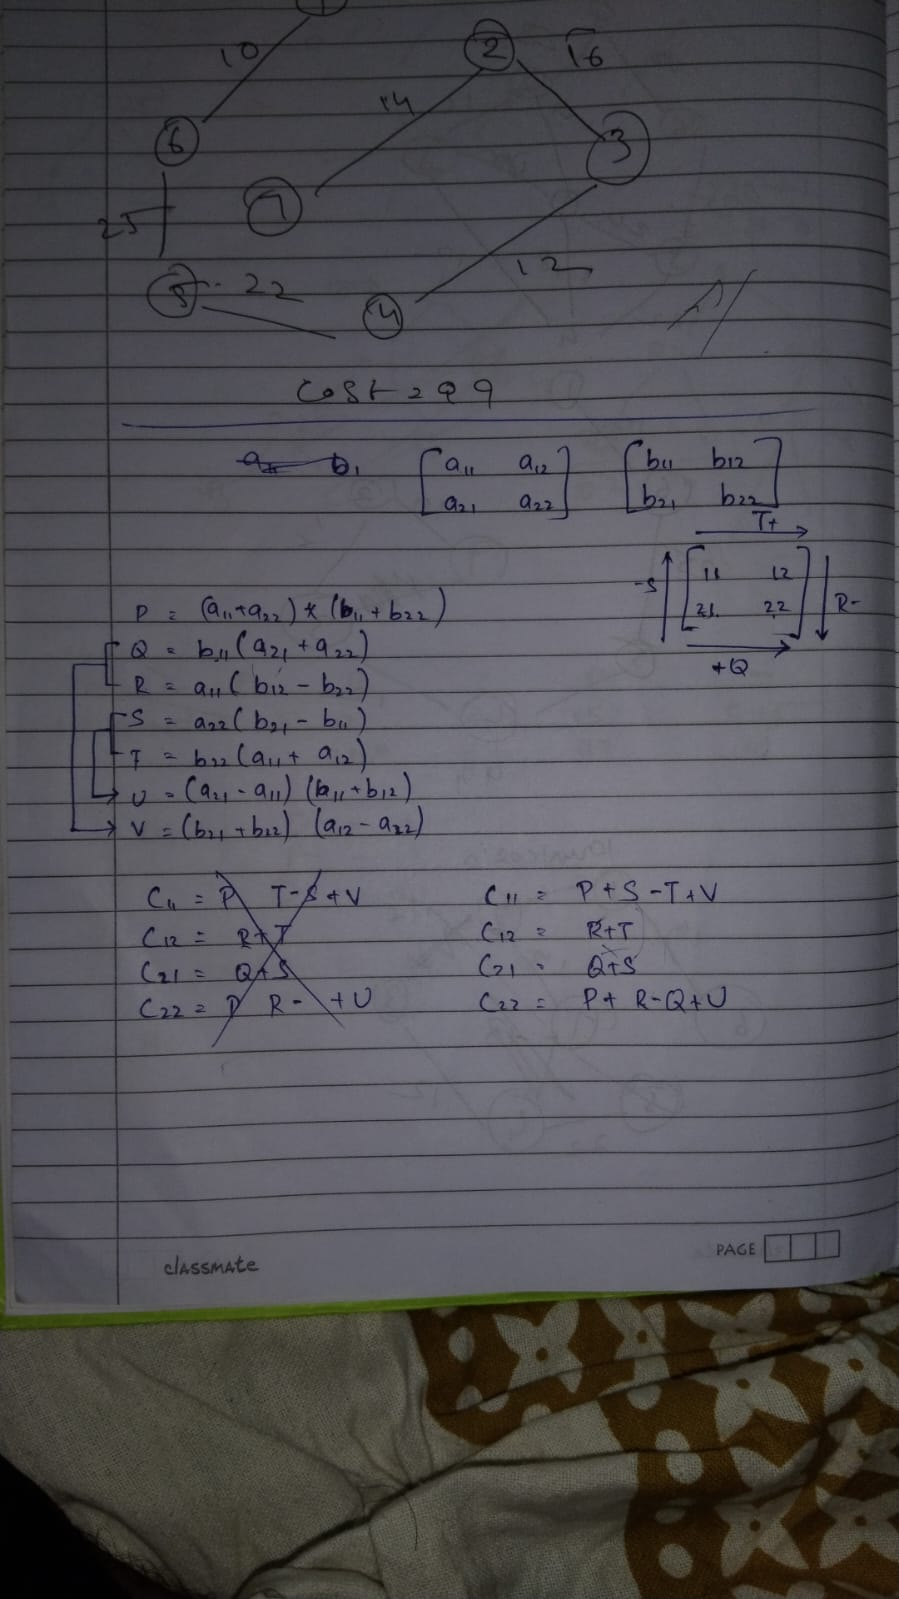 1
10
2
16
14
6
3
7
25
12
5
22
4
Cost = 99
[a11 a12 [b11 b12
a21 a22] b21 b22]
T+
-S [11 12
21 22] R-
+Q
P = (a11+a22) * (b11+b22)
Q = b11(a21+a22)
R = a11(b12-b22)
S = a22(b21-b11)
T = b22(a11+a12)
U = (a21-a11) (b11+b12)
V = (b21+b22) (a12-a22)
C11 = P T-S+V
C12 = R+T
C21 = Q+S
C22 = P R- +U
C11 = P+S-T+V
C12 = R+T
C21 = Q+S
C22 = P+R-Q+U
classmate
PAGE